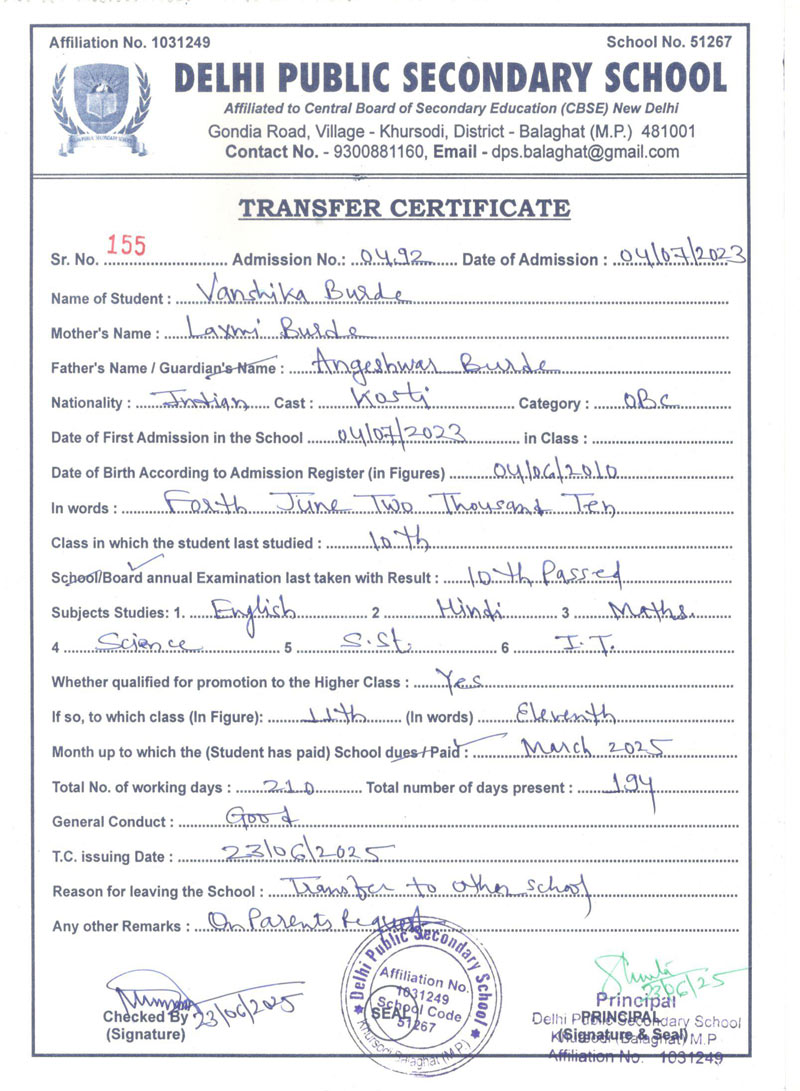 Affiliation No. 1031249 School No. 51267
DELHI PUBLIC SECONDARY SCHOOL
Affiliated to Central Board of Secondary Education (CBSE) New Delhi
Gondia Road, Village - Khursodi, District - Balaghat (M.P.) 481001
Contact No. - 9300881160, Email - dps.balaghat@gmail.com
TRANSFER CERTIFICATE
Sr. No. 155 Admission No.: 0492 Date of Admission : 04/07/2023
Name of Student : Vanshika Burde
Mother's Name : Laxmi Burde
Father's Name / Guardian's Name : Angeshwar Burde
Nationality : Indian Cast : Kosti Category : OBC
Date of First Admission in the School 04/07/2023 in Class :
Date of Birth According to Admission Register (in Figures) 04/06/2010
In words : Forth June Two Thousand Ten
Class in which the student last studied : 10th
School/Board annual Examination last taken with Result : 10th Passed
Subjects Studies: 1. English 2 Hindi 3 Maths.
4 Science 5 S.St. 6 I.T.
Whether qualified for promotion to the Higher Class : Yes
If so, to which class (In Figure): 11th (In words) Eleventh
Month up to which the (Student has paid) School dues / Paid : March 2025
Total No. of working days : 210 Total number of days present : 194
General Conduct : Good
T.C. issuing Date : 23/06/2025
Reason for leaving the School : Transfer to other school
Any other Remarks : On Parents Request
Delhi Public Secondary School
Affiliation No.
1031249
School Code
SEAL
51267
Khursodi Balaghat (M.P.)
Checked By 23/06/2025
(Signature)
23/06/25
Principal
PRINCIPAL
Delhi Public Secondary School
(Signature & Seal)
Khursodi (Balaghat) M.P
Affiliation No. 1031249